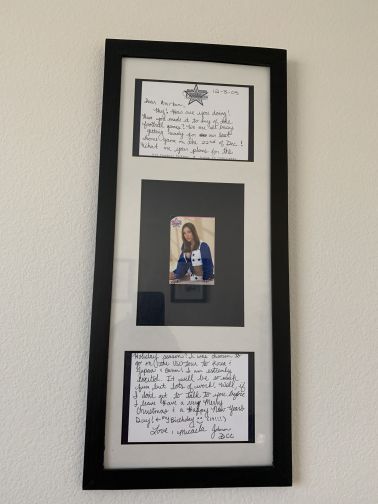 12-8-05
Dear
Hey! How are you doing?
Have you made it to any of the
football games? We are just busy
getting ready for our last
home game on the 22nd of Dec!
What are your plans for the
Holiday season? I was chosen to
go on the USO Tour to Korea,
Japan & Guam! I am extremely
excited. It will be so much
fun but lots of work. Well, if
I don't get to talk to you before
I leave Have a very Merry
Christmas & a Happy New Years
Day! & my Birthday
Love, Micaela Johnson
DCC